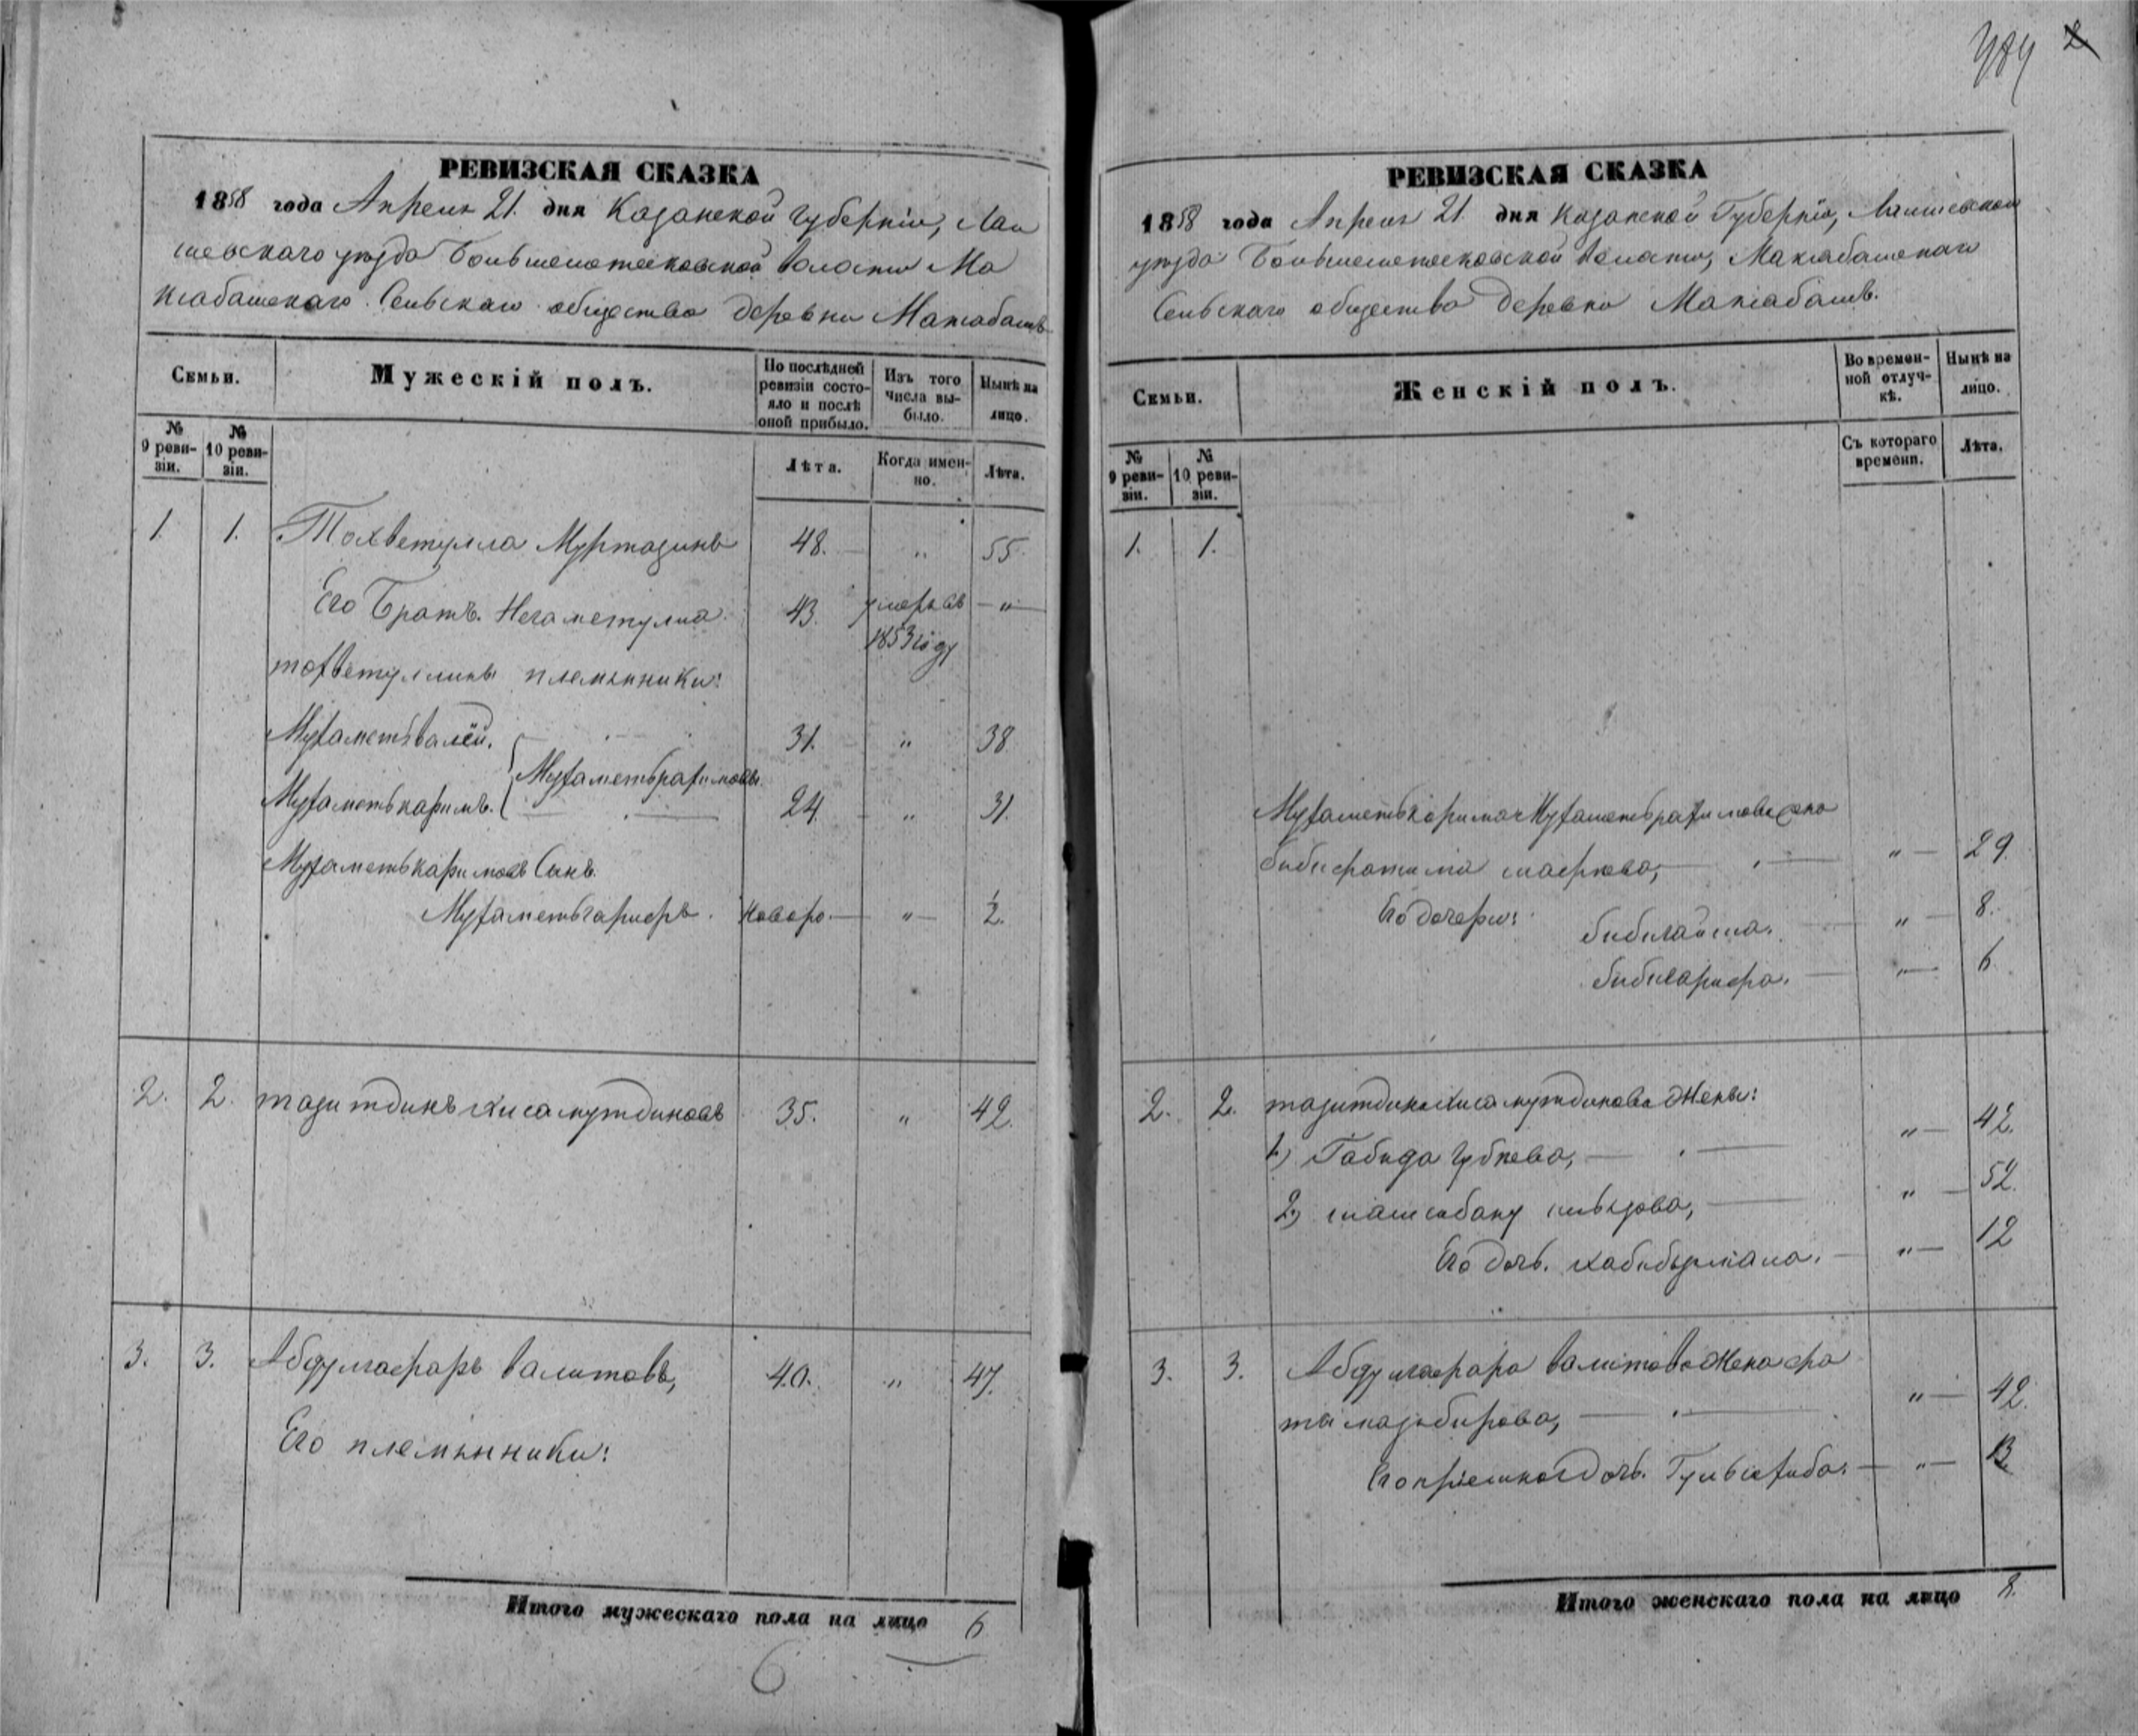 2
РЕВИЗСКАЯ СКАЗКА
1858 года Апреля 21. дня Казанской губернiи, Лаи
шевскаго уезда волости Ма
ксабашскаго Сельскаго общества деревни Максабашъ
Семьи.
Мужескiй полъ.
По послѣдней ревизiи состояло и послѣ оной прибыло.
Изъ того числа выбыло.
Нынѣ на лицо.
№ 9 ревизiи.
№ 10 ревизiи.
Лѣта.
Когда именно.
Лѣта.
1. 1. Тохветулла Муртазинъ 48. " 55.
Его Братъ. Негаметулла 43. умеръ въ 1853 году "
тохветуллины племянники:
Мухаметвалей. 31. " 38
Мухаметьрахимовы.
Мухаметькаримъ. 24 " 31.
Мухаметькаримовъ Сынъ.
Мухаметьгарифъ. новоро. " 1/2.
2. 2. тазитдинъ хисамутдиновъ 35. " 42.
3. 3. Абдулгафаръ валитовъ, 40. " 47.
Его племянники:
Итого мужескаго пола на лицо 6
6
РЕВИЗСКАЯ СКАЗКА
1858 года Апреля 21 дня Казанской Губернiи, Лаишевскаго
уезда волости, Максабашскаго
Сельскаго общества деревни Максабашъ.
Семьи.
Женскiй полъ.
Во временной отлучкѣ.
Нынѣ на лицо.
№ 9 ревизiи.
№ 10 ревизiи.
Съ котораго времени.
Лѣта.
1. 1.
Мухаметькарима Мухаметьрахимова жена
бибифатима " 29.
Его дочери: бибигайша. " 8.
бибисарифа. " 6
2. 2. тазитдина хисамутдинова Жены:
1) Габида Губеева, " 42.
2) шамсибану " 52.
Его дочь. " 12
3. 3. Абдулгафара валитова Жена фа
тима " 42.
Его прiемная дочь. " 13
Итого женскаго пола на лицо 8.